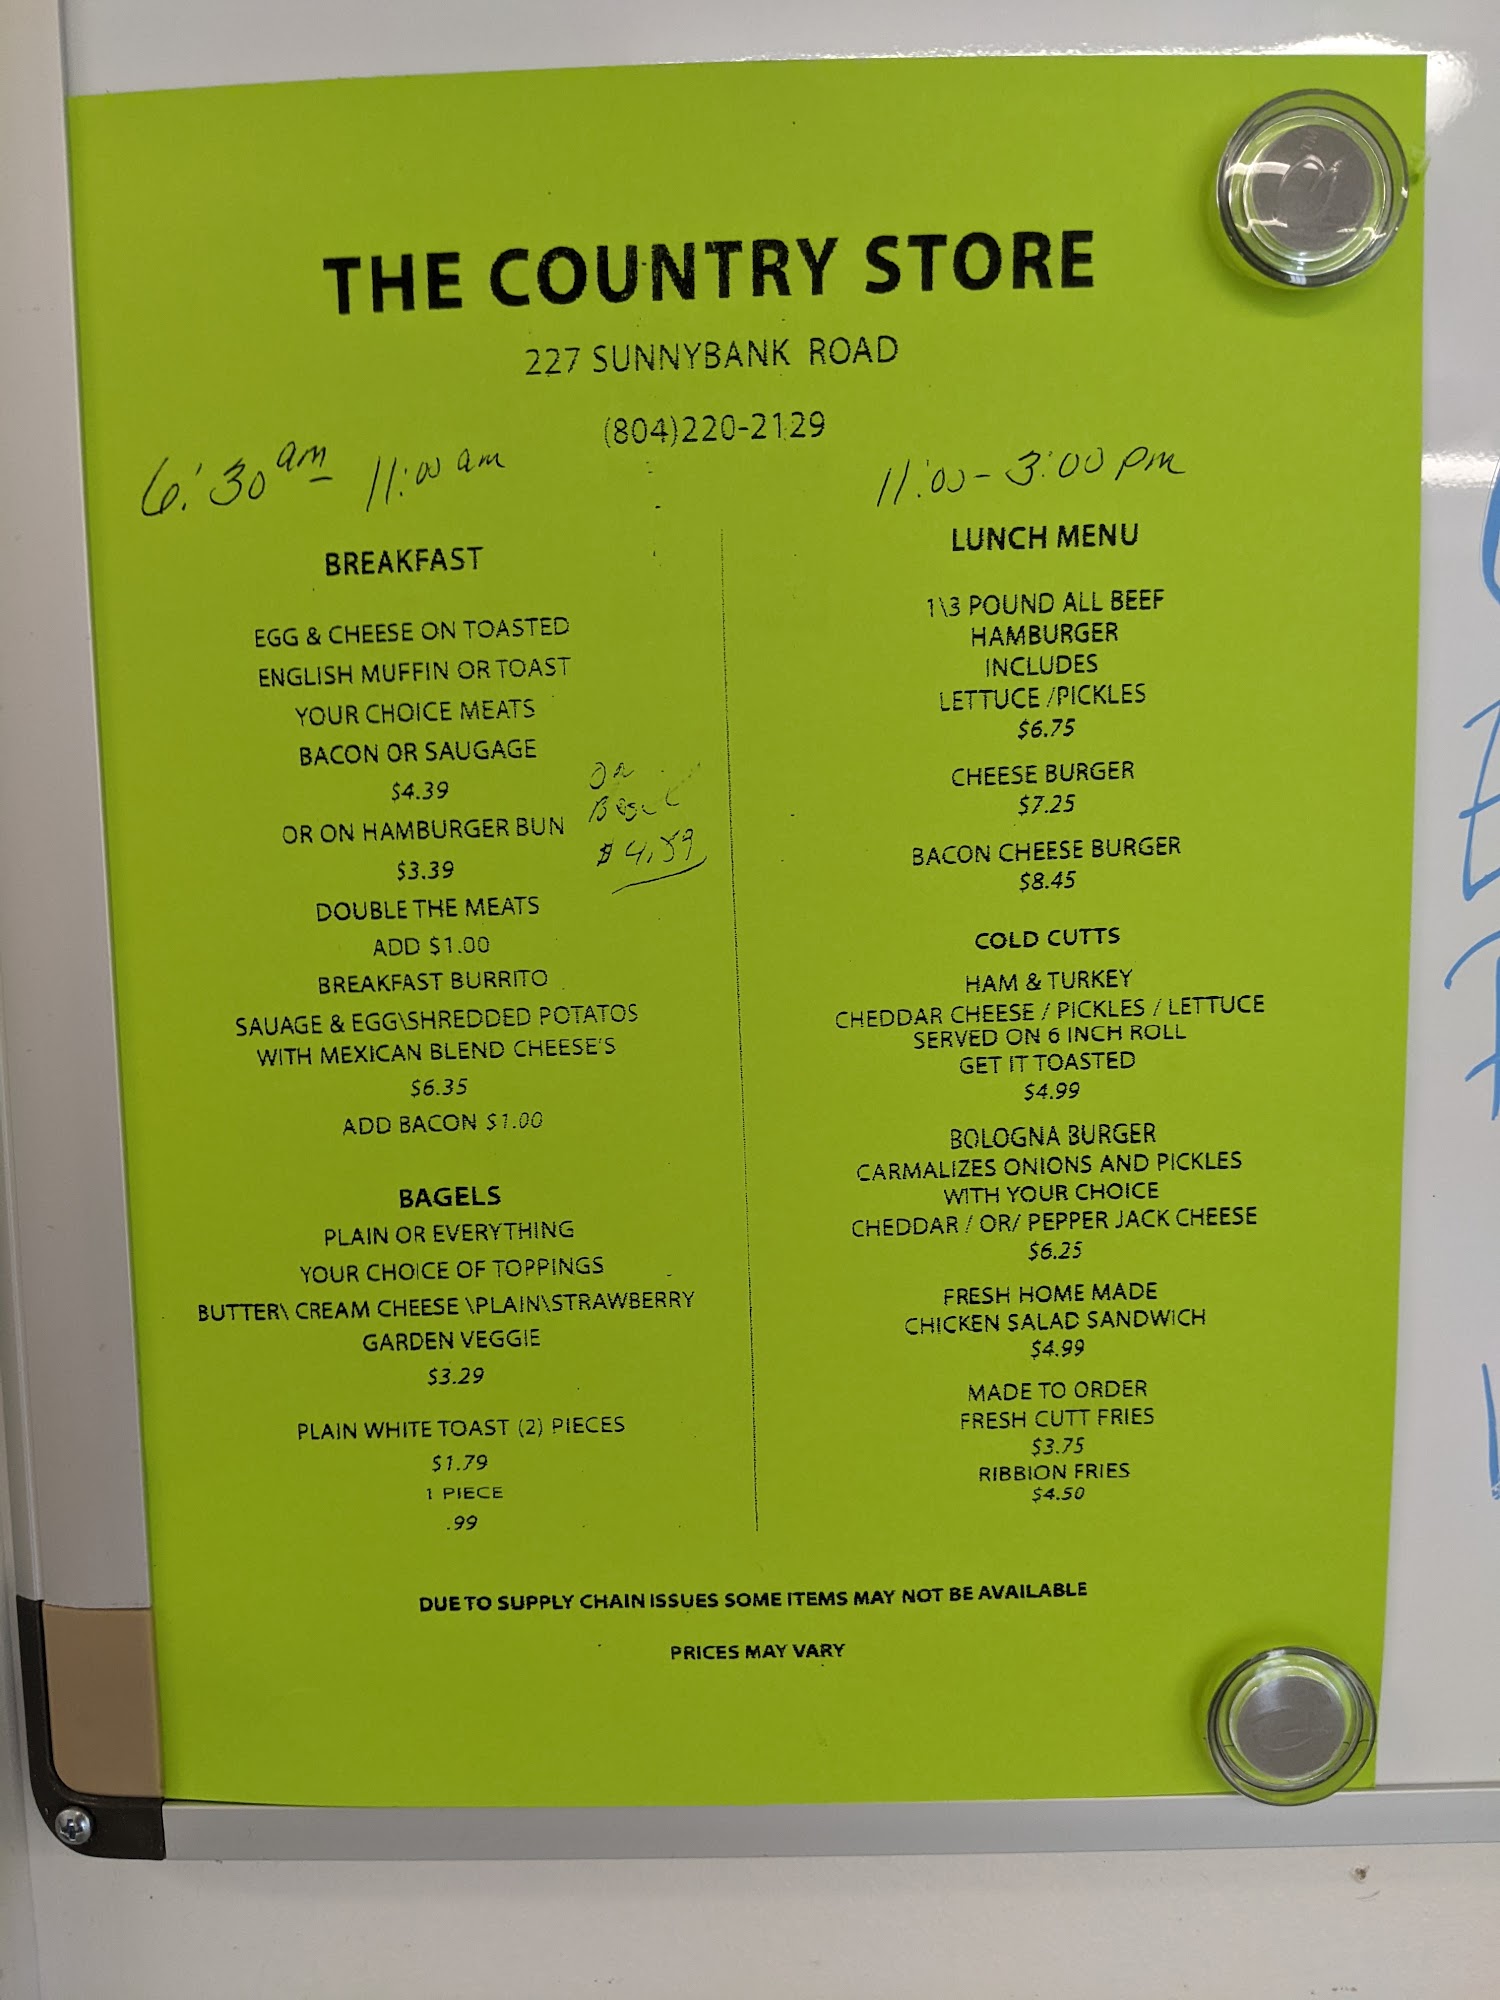 THE COUNTRY STORE
227 SUNNYBANK ROAD
(804)220-2129
6:30 am - 11:00 am
BREAKFAST
EGG & CHEESE ON TOASTED
ENGLISH MUFFIN OR TOAST
YOUR CHOICE MEATS
BACON OR SAUGAGE
$4.39
OR ON HAMBURGER BUN
$3.39
On
Bagel
DOUBLE THE MEATS
ADD $1.00
BREAKFAST BURRITO
SAUAGE & EGG\SHREDDED POTATOS
WITH MEXICAN BLEND CHEESE'S
$6.35
ADD BACON $1.00
BAGELS
PLAIN OR EVERYTHING
YOUR CHOICE OF TOPPINGS
BUTTER\ CREAM CHEESE \PLAIN\STRAWBERRY
GARDEN VEGGIE
$3.29
PLAIN WHITE TOAST (2) PIECES
$1.79
1 PIECE
.99
11:00 - 3:00 pm
LUNCH MENU
1\3 POUND ALL BEEF
HAMBURGER
INCLUDES
LETTUCE /PICKLES
$6.75
CHEESE BURGER
$7.25
BACON CHEESE BURGER
$8.45
COLD CUTTS
HAM & TURKEY
CHEDDAR CHEESE / PICKLES / LETTUCE
SERVED ON 6 INCH ROLL
GET IT TOASTED
$4.99
BOLOGNA BURGER
CARMALIZES ONIONS AND PICKLES
WITH YOUR CHOICE
CHEDDAR / OR/ PEPPER JACK CHEESE
$6.25
FRESH HOME MADE
CHICKEN SALAD SANDWICH
$4.99
MADE TO ORDER
FRESH CUTT FRIES
$3.75
RIBBION FRIES
$4.50
DUE TO SUPPLY CHAIN ISSUES SOME ITEMS MAY NOT BE AVAILABLE
PRICES MAY VARY